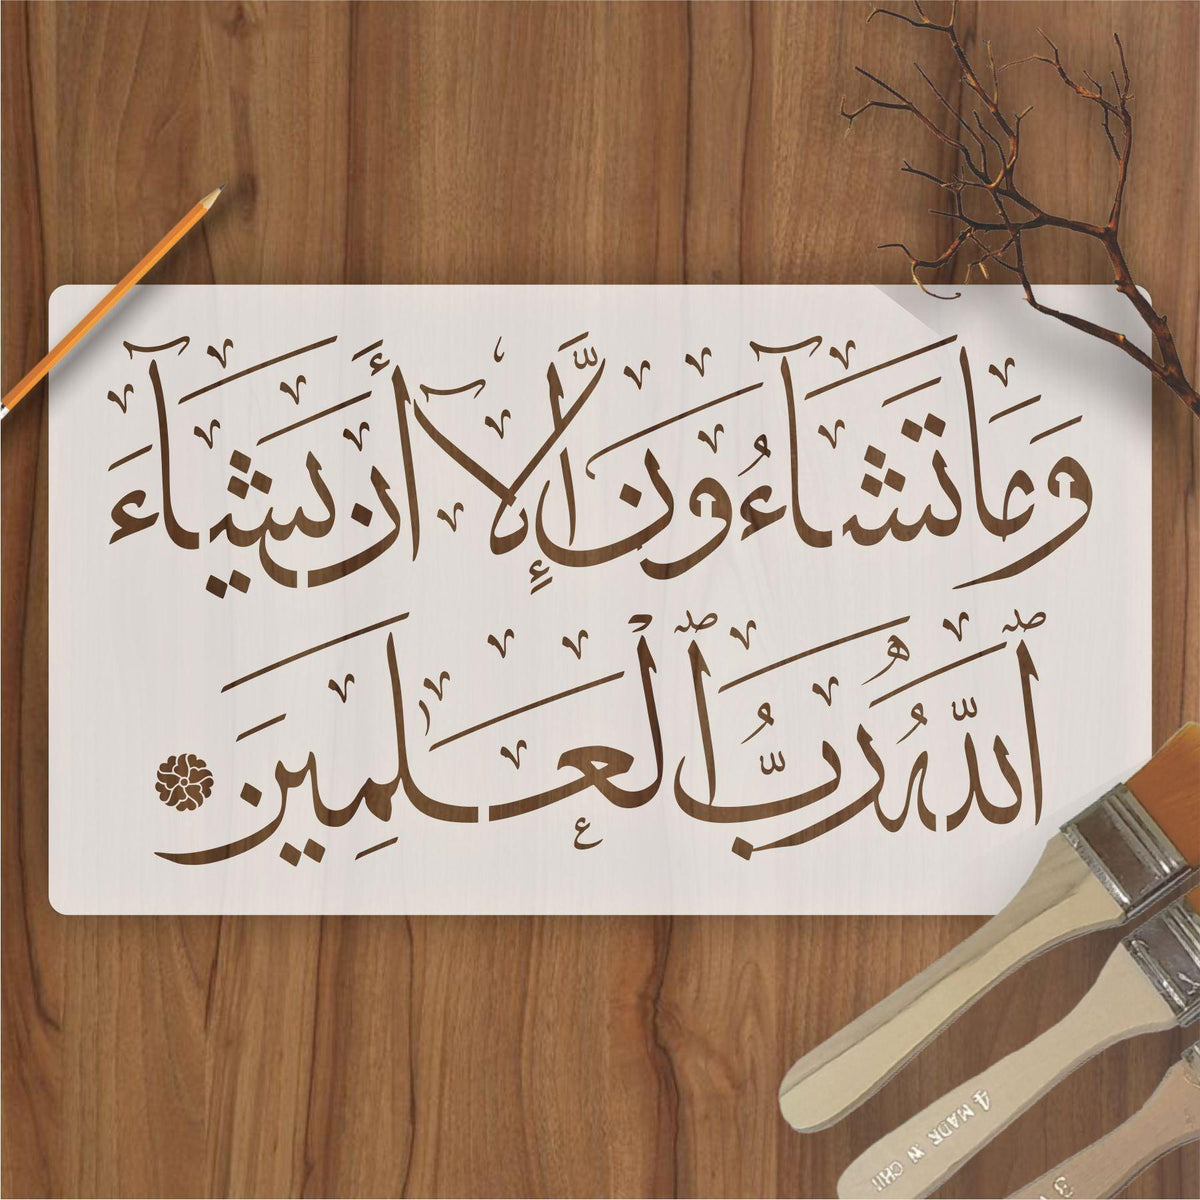 وَمَا تَشَآءُونَ إِلَّآ أَن يَشَآءَ
ٱللَّهُ رَبُّ ٱلْعَـٰلَمِينَ
4 MADE IN CHI
3